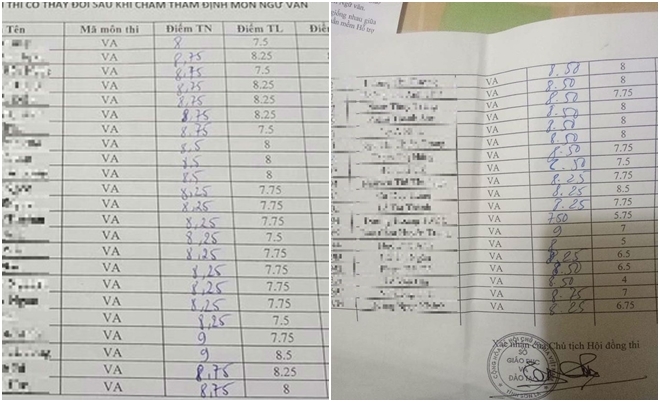 THI CÓ THAY ĐỔI SAU KHI CHẤM THẨM ĐỊNH MÔN NGỮ VĂN
Tên Mã môn thi Điểm TN Điểm TL
VA 8 7.5
VA 8,75 8.25
VA 8,75 7.5
VA 8,75 8.25
VA 8,75 8.25
VA 8,75 8.25
VA 8,75 7.5
VA 8,5 8
VA 8,5 8
VA 8,5 8
VA 8,25 7.75
VA 8,25 7.75
VA 8,25 7.75
VA 8,25 7.5
VA 8,25 7.75
VA 8,25 7.75
VA 8,25 7.75
VA 8,25 7.75
VA 8,25 7.5
VA 9 7.75
VA 9 8.5
VA 8,75 8.25
VA 8,75 8
Ngữ văn.
giống nhau giữa
mềm Hỗ trợ
VA 8.50 8
VA 8.50 8
VA 8.50 7.75
VA 8.50 8
VA 8.50 8
VA 8.50 8
VA 8.50 7.75
VA 8.50 7.5
VA 8.25 7.75
VA 8.25 8.5
VA 8.25 7.75
VA 750 5.75
VA 9 7
VA 8 5
VA 8.25 6.5
VA 8.50 6.5
VA 8.50 4
VA 8.75 7
VA 8.25 6.75
Xác nhận của Chủ tịch Hội đồng thi
SỞ
GIÁO DỤC
VÀ
ĐÀO TẠO